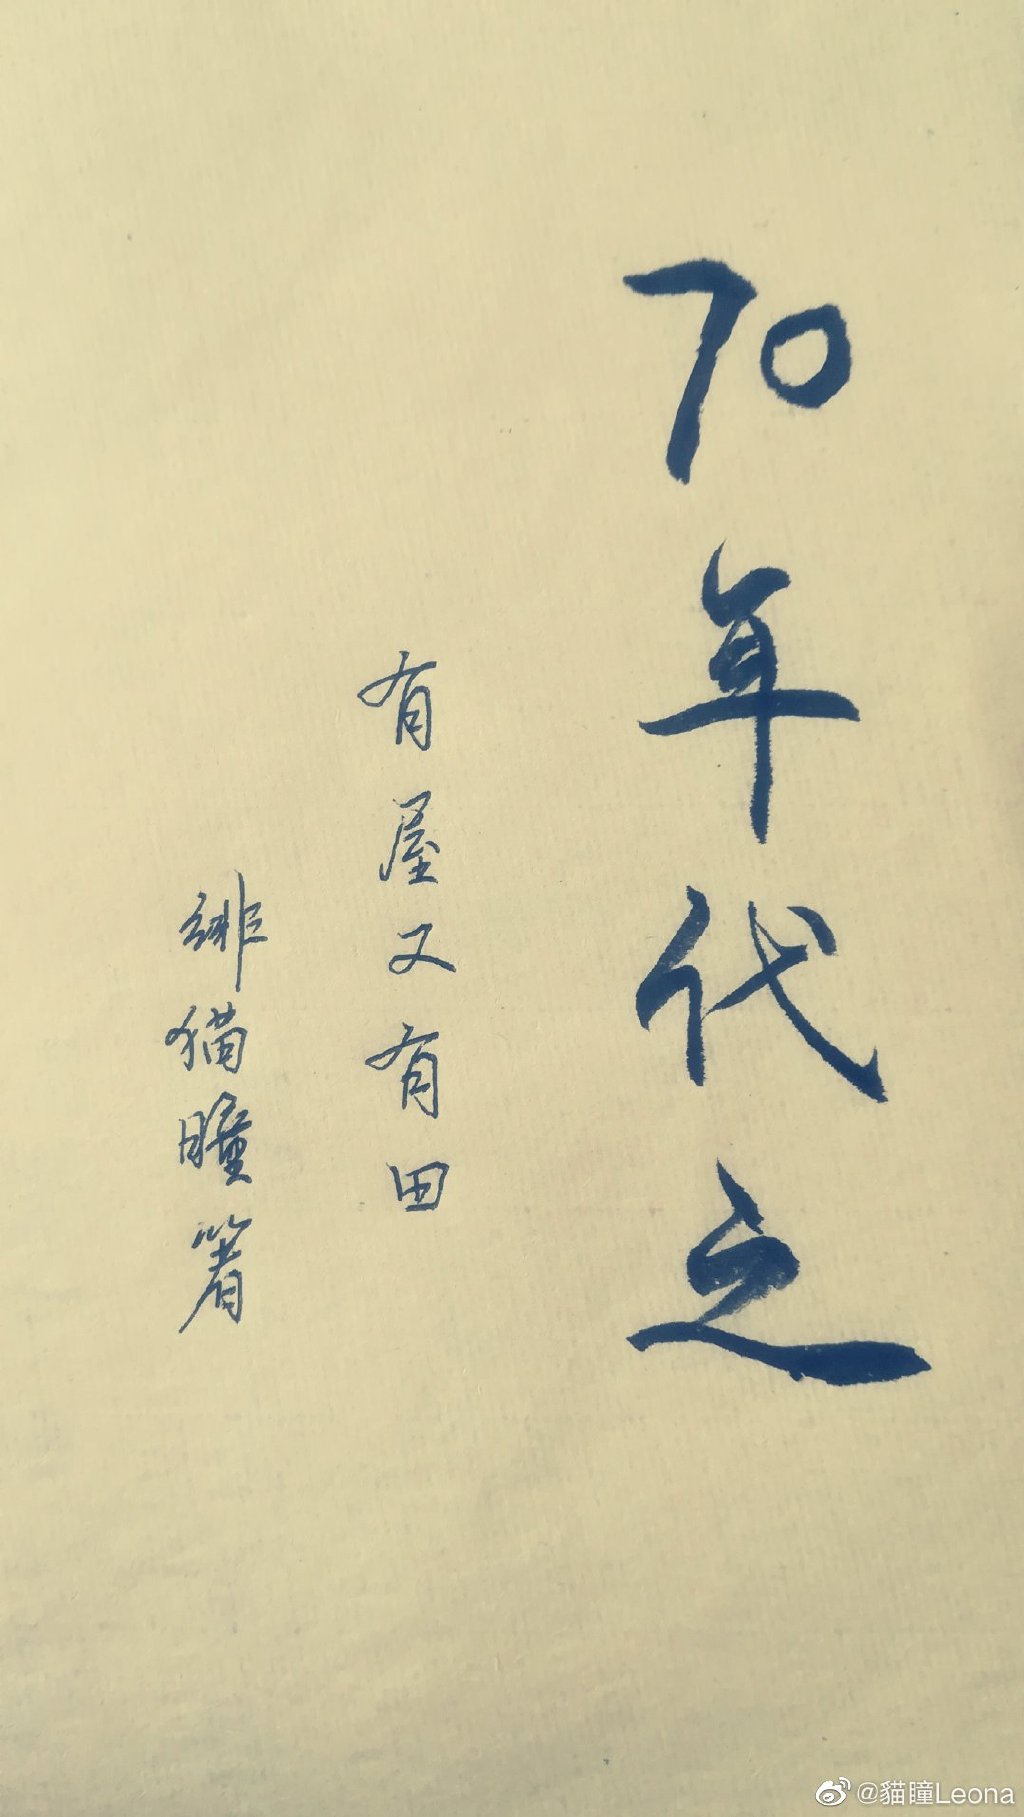 70年代之
有屋又有田
緋猫瞳箸
@貓瞳Leona